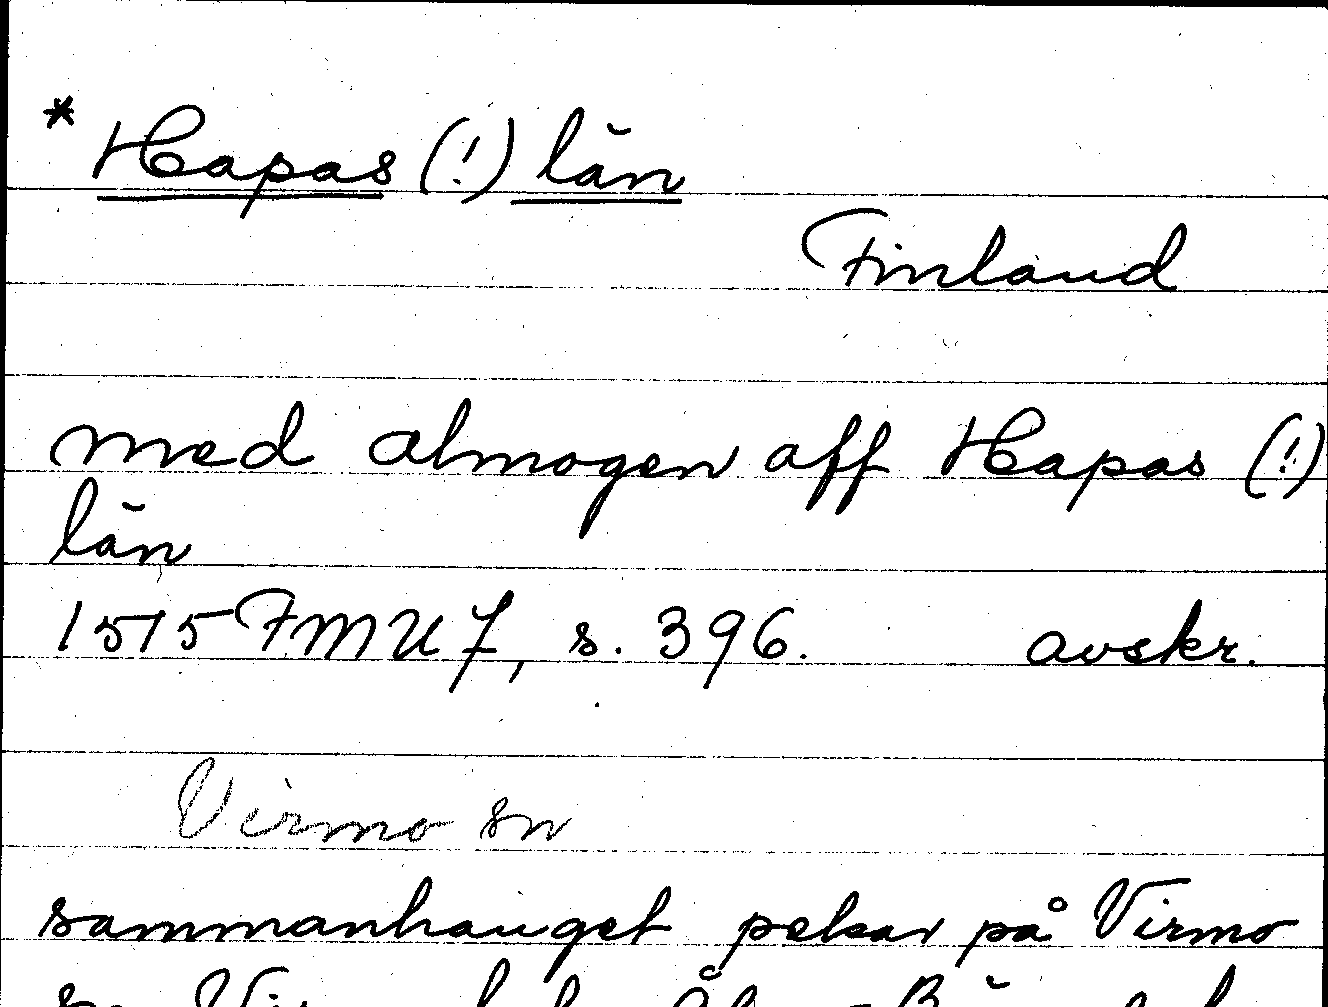 * Hapas (!) län
Finland
med almogen aff Hapas (!)
län
1515 FMU 7, s. 396. avskr.
Virmo sn
sammanhanget pekar på Virmo